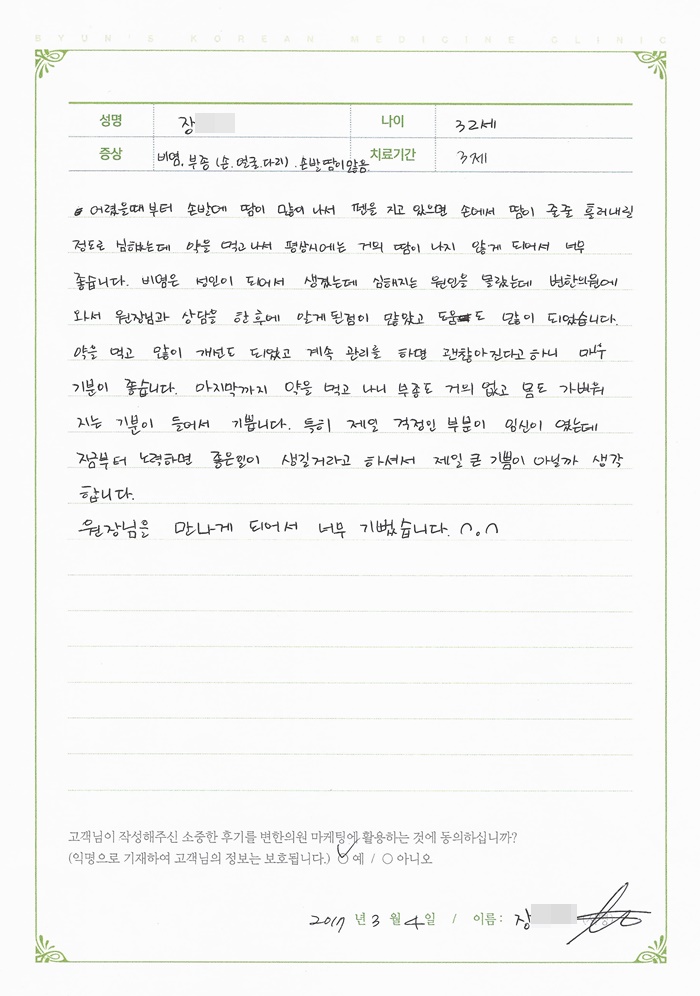 BYUN'S KOREAN MEDICINE CLINIC
성명 장 나이 32세
증상 비염, 부종 (손.얼굴.다리). 손발땀이많음. 치료기간 3제
어렸을때부터 손발에 땀이 많이 나서 펜을 지고 있으면 손에서 땀이 줄줄 흘러내릴
정도로 심했는데 약을 먹고나서 평상시에는 거의 땀이 나지 않게 되어서 너무
좋습니다. 비염은 성인이 되어서 생겼는데 심해지는 원인을 몰랐는데 변한의원에
와서 원장님과 상담을 한후에 알게된점이 많았고 도움도 많이 되었습니다.
약을 먹고 많이 개선도 되었고 계속 관리를 하면 괜찮아진다고하니 매우
기분이 좋습니다. 마지막까지 약을 먹고 나니 부종도 거의 없고 몸도 가벼워
지는 기분이 들어서 기쁩니다. 특히 제일 걱정인 부분이 임신이 였는데
지금부터 노력하면 좋은일이 생길거라고 하셔서 제일 큰 기쁨이 아닐까 생각
합니다.
원장님을 만나게 되어서 너무 기뻤습니다. ∩.∩
고객님이 작성해주신 소중한 후기를 변한의원 마케팅에 활용하는 것에 동의하십니까?
(익명으로 기재하여 고객님의 정보는 보호됩니다.) ○ 예 / ○ 아니오
2017 년 3 월 4 일 / 이름 : 장